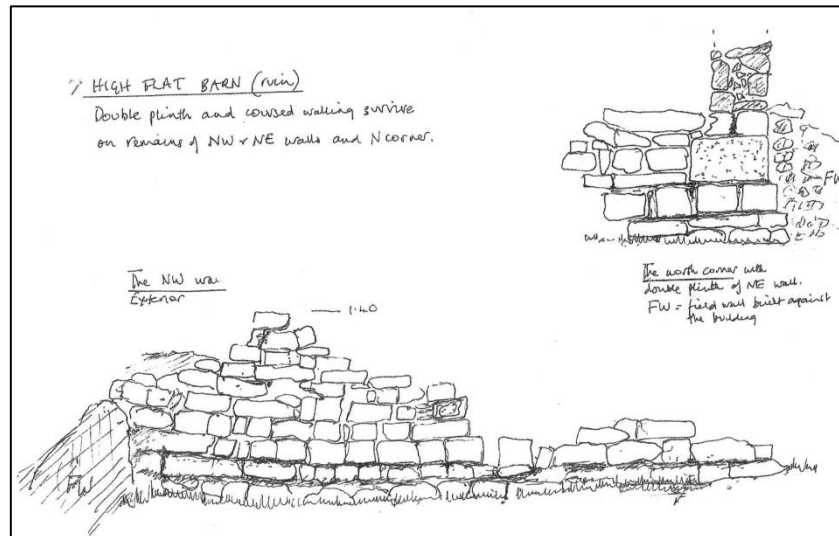 HIGH FLAT BARN (ruin)
Double plinth and coursed walling survive
on remains of NW & NE walls and N corner.
FW
The north corner with
double plinth of NE wall.
FW = field wall built against
the building
The NW wall
Exterior
1.40
FW